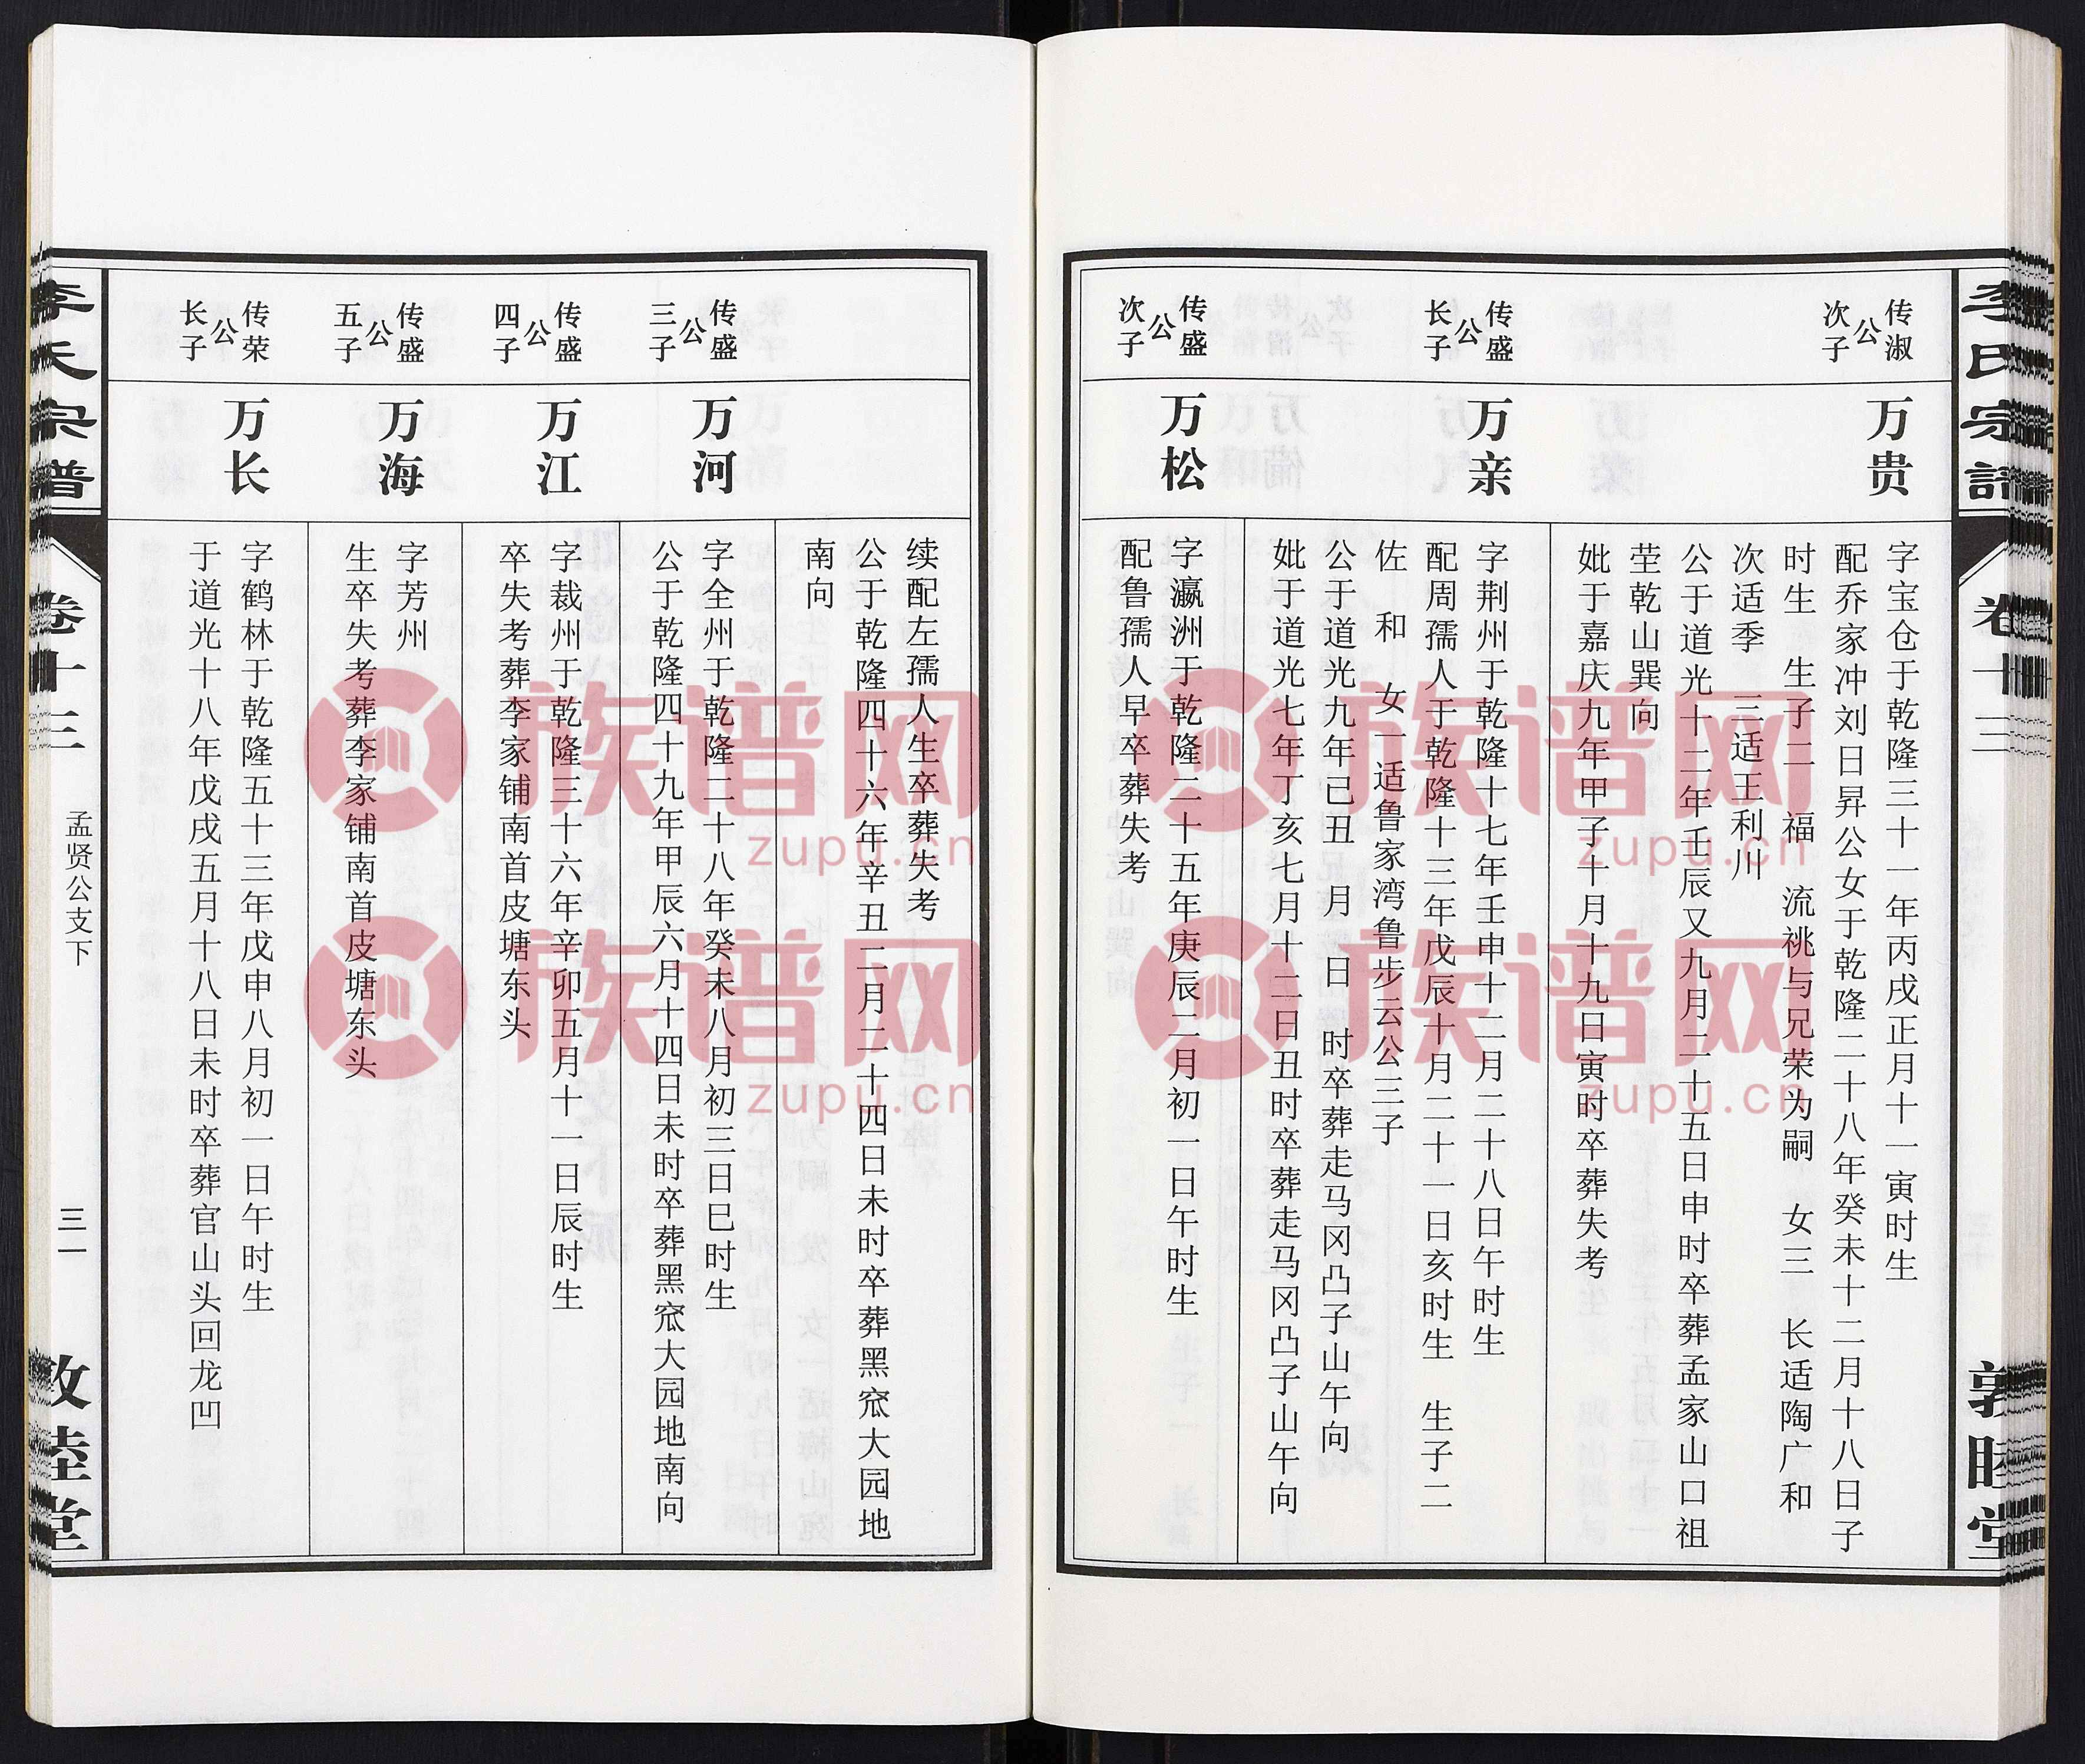 李氏宗谱
卷十三
敦睦堂
传淑公次子
万贵
字宝仓于乾隆三十一年丙戌正月十一寅时生
配乔家冲刘日昇公女于乾隆二十八年癸未十二月十八日子
时生 生子二 福 流祧与兄荣为嗣 女三 长适陶广和
次适季 三适王利川
公于道光十二年壬辰又九月二十五日申时卒葬孟家山口祖
茔乾山巽向
妣于嘉庆九年甲子十月十九日寅时卒葬失考
传盛公长子
万亲
字荆州于乾隆十七年壬申十二月二十八日午时生
配周孺人于乾隆十三年戊辰十月二十一日亥时生 生子二
佐 和 女一适鲁家湾鲁步云公三子
公于道光九年已丑 月 日 时卒葬走马冈凸子山午向
妣于道光七年丁亥七月十二日丑时卒葬走马冈凸子山午向
传盛公次子
万松
字瀛洲于乾隆二十五年庚辰二月初一日午时生
配鲁孺人早卒葬失考
续配左孺人生卒葬失考
公于乾隆四十六年辛丑二月二十四日未时卒葬黑窊大园地
南向
传盛公三子
万河
字全州于乾隆二十八年癸未八月初三日巳时生
公于乾隆四十九年甲辰六月十四日未时卒葬黑窊大园地南向
传盛公四子
万江
字裁州于乾隆三十六年辛卯五月十一日辰时生
卒失考葬李家铺南首皮塘东头
传盛公五子
万海
字芳州
生卒失考葬李家铺南首皮塘东头
传荣公长子
万长
字鹤林于乾隆五十三年戊申八月初一日午时生
于道光十八年戊戌五月十八日未时卒葬官山头回龙凹
李氏宗谱
卷十三
孟贤公支下
三一
敦睦堂
族谱网
zupu.cn
族谱网
zupu.cn
族谱网
zupu.cn
族谱网
zupu.cn